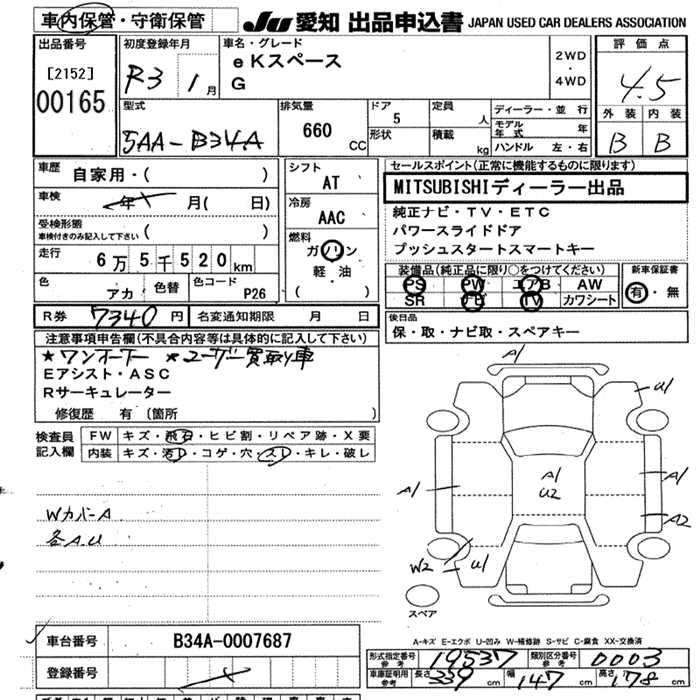 車内保管・守衛保管
JU 愛知 出品申込書 JAPAN USED CAR DEALERS ASSOCIATION
出品番号
[2152]
00165
初度登録年月
R3 1月
車名・グレード
eKスペース
G
2WD
・
4WD
評価点
4.5
外装 内装
B B
型式
5AA-B34A
排気量
660 CC
ドア
5
形状
定員
人
積載
kg
ディーラー・並行
モデル年式 年
ハンドル 左・右
車歴 自家用・( )
車検 年 月( 日)
受検形態
車検付きのみ記入して下さい ( )
走行 6万5千520km
色 アカ 色替 色コード P26
シフト
AT
冷房
AAC
燃料
ガソリン
軽・油
( )
セールスポイント(正常に機能するものに限ります)
MITSUBISHIディーラー出品
純正ナビ・TV・ETC
パワースライドドア
プッシュスタートスマートキー
装備品(純正品に限り○をつけてください)
PS PW エアB AW
SR ナビ TV カワシート
新車保証書
有・無
R券 7340円 名変通知期限 月 日
後日品
保・取・ナビ取・スペアキー
注意事項申告欄(不具合内容等は具体的に記入して下さい)
★ワンオーナー ★ユーザー買取り車
Eアシスト・ASC
Rサーキュレーター
修復歴 有 〔箇所 〕
検査員
記入欄
FW キズ・飛石・ヒビ割・リペア跡・X要
内装 キズ・汚レ・コゲ・穴・スレ・キレ・破レ
Wカバー A
各A.U
A1
U1
A1
U2
A1
A1
A2
W2
U1
スペア
A-キズ E-エクボ U-凹み W-補修跡 S-サビ C-腐食 XX-交換済
車台番号 B34A-0007687
登録番号
形式指定番号
参考 19537
類別区分番号
参考 0003
車庫証明用
参考 長さ 339 cm 幅 147 cm 高さ 178 cm